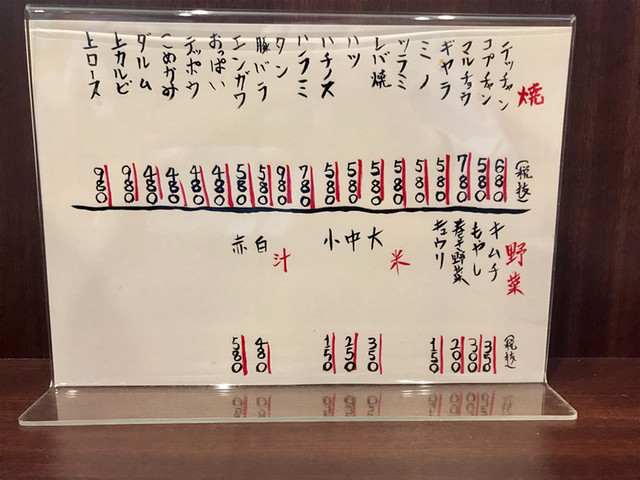 焼 (税抜)
テッチャン 680
コプチャン 580
マルチョウ 780
ギヤラ 580
ミノ 580
ツラミ 580
レバ焼 580
ハツ 580
ハチノス 580
ハラミ 780
タン 980
豚バラ 580
エンガワ 580
おっぱい 480
テッポウ 480
こめかみ 480
ダルム 480
上カルビ 980
上ロース 980
野菜 (税抜)
キムチ 350
もやし 300
巻き野菜 200
キュウリ 150
米
大 350
中 250
小 150
汁
白 480
赤 580